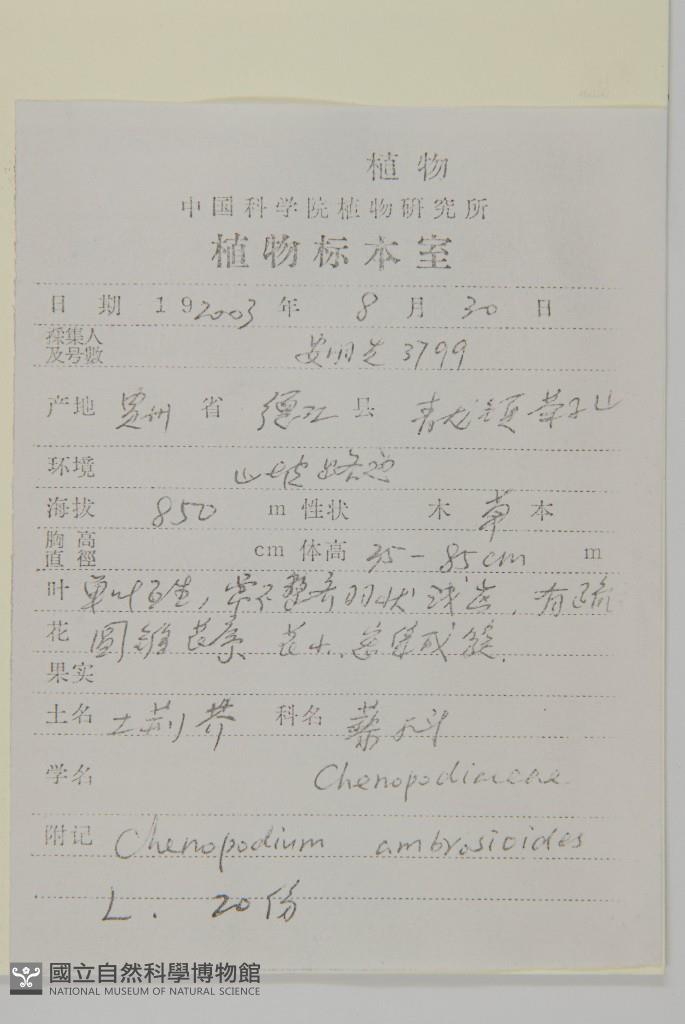 植物
中国科学院植物研究所
植物标本室
日期 192003年 8月 30日
採集人
及号數 安明先 3799
产地 贵州 省 德江 县 青龙镇
环境 山坡路旁
海拔 850 m 性状 木 草 本
胸高
直徑 cm 体高 35-85cm m
叶 单叶互生,常不整齐羽状浅, 有疏
花 圆锥花序 花小,
果实
土名 土荆芥 科名 藜科
学名 Chenopodiaceae
附记 Chenopodium ambrosioides
L. 20份
國立自然科學博物館
NATIONAL MUSEUM OF NATURAL SCIENCE